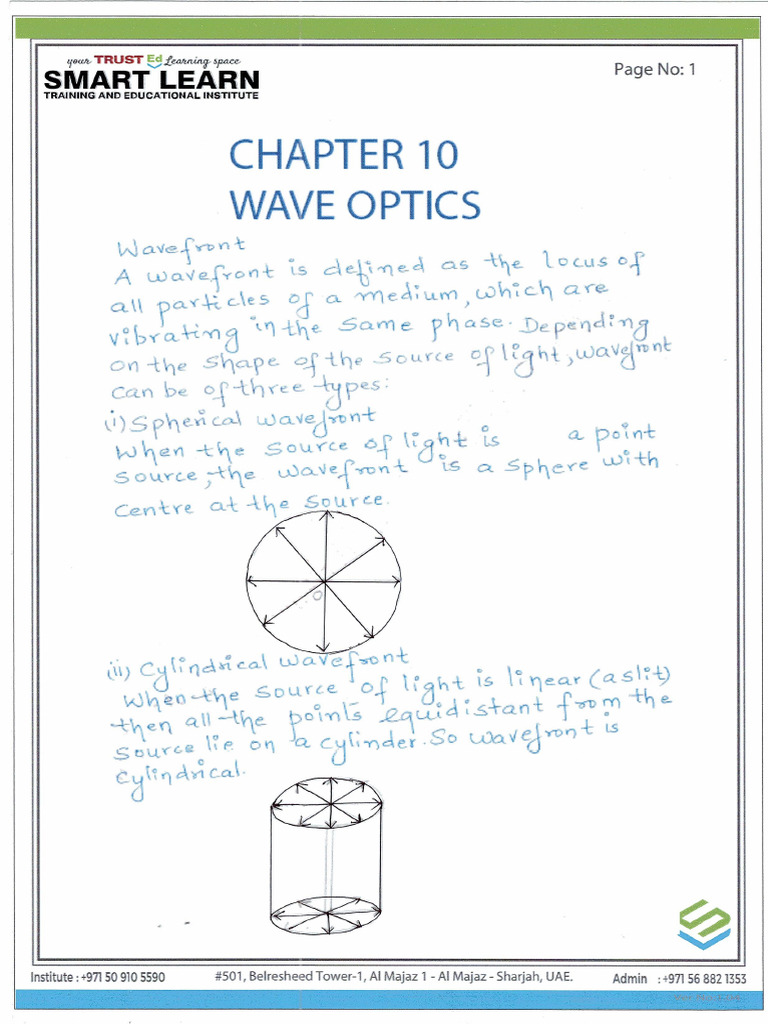 your TRUST Ed Learning space
SMART LEARN
TRAINING AND EDUCATIONAL INSTITUTE
Page No: 1
CHAPTER 10
WAVE OPTICS
Wavefront
A wavefront is defined as the locus of
all particles of a medium, which are
vibrating in the same phase. Depending
on the shape of the source of light, wavefront
can be of three types:
(i) Spherical wavefront
When the source of light is a point
source, the wavefront is a sphere with
centre at the source.
O
(ii) Cylindrical wavefront
When the source of light is linear (a slit)
then all the points equidistant from the
source lie on a cylinder. So wavefront is
cylindrical.
Institute : +971 50 910 5590
#501, Belresheed Tower-1, Al Majaz 1 - Al Majaz - Sharjah, UAE.
Admin : +971 56 882 1353